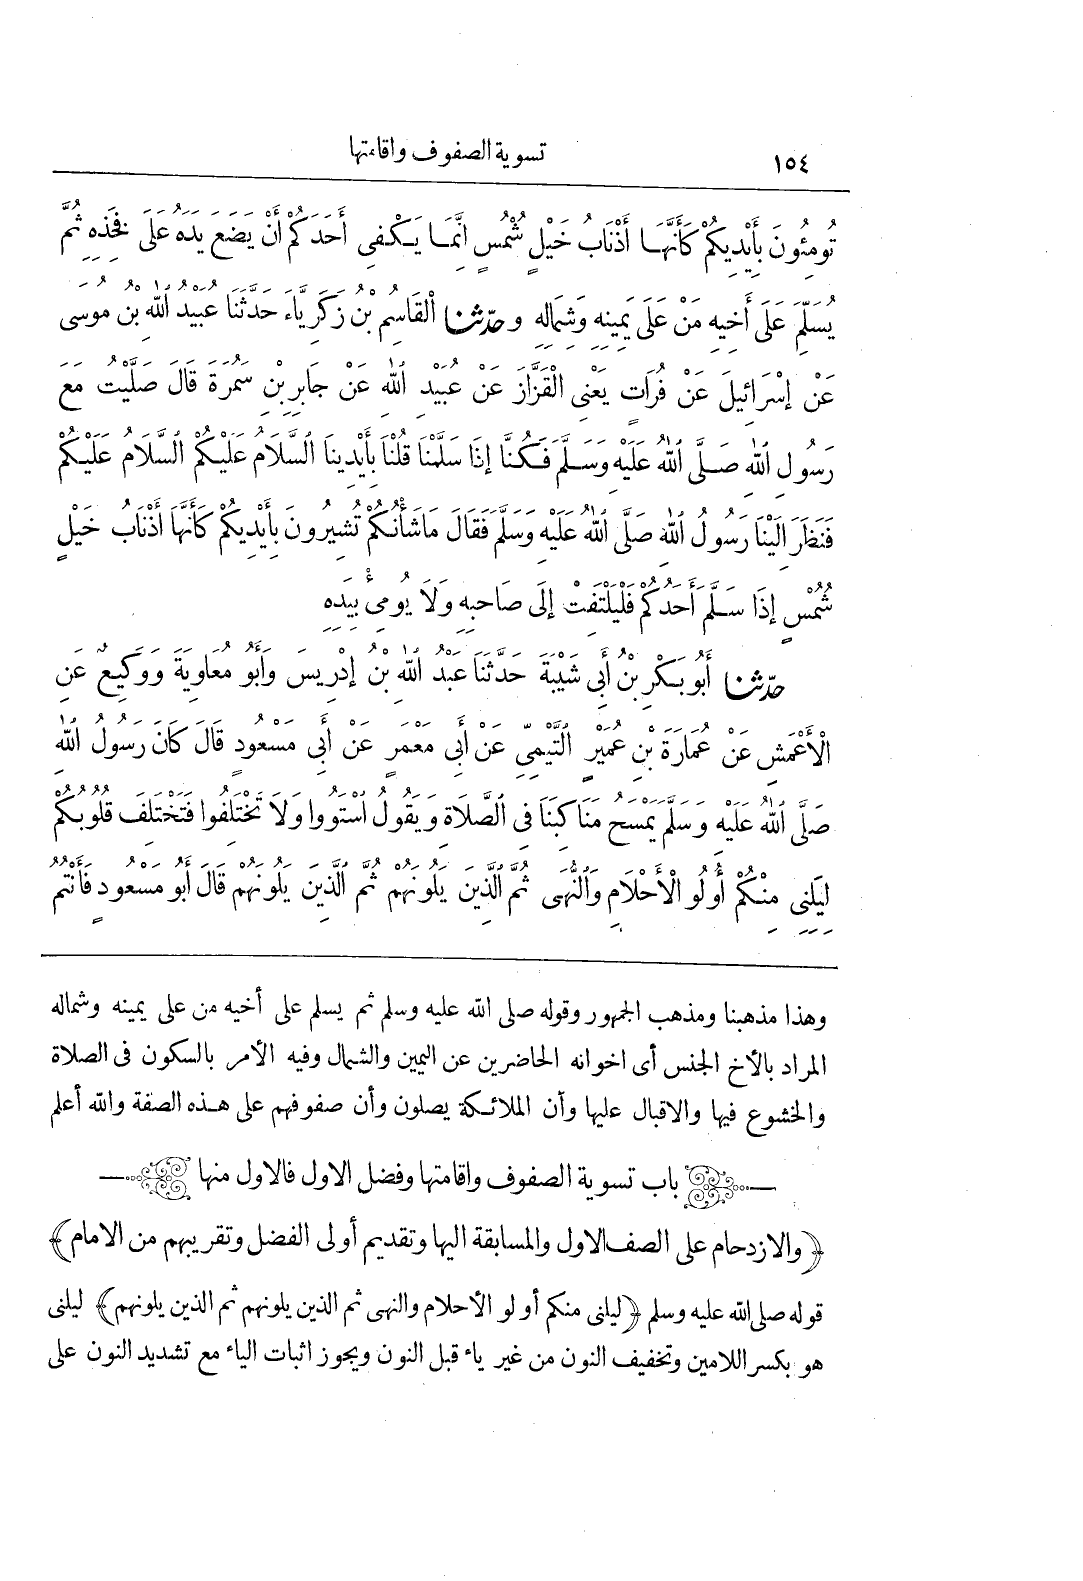 ١٥٤
تسوية الصفوف واقامتها
تُومِئُونَ بِأَيْدِيكُمْ كَأَنَّهَا أَذْنَابُ خَيْلٍ شُمْسٍ إِنَّمَا يَكْفِى أَحَدَكُمْ أَنْ يَضَعَ يَدَهُ عَلَى فَخِذِهِ ثُمَّ
يُسَلِّمُ عَلَى أَخِيهِ مَنْ عَلَى يَمِينِهِ وَشِمَالِهِ و حدّثنا الْقَاسِمُ بْنُ زَكَرِيَّاءَ حَدَّثَنَا عُبَيْدُ اللهِ بْنُ مُوسَى
عَنْ إِسْرَائِيلَ عَنْ فُرَاتٍ يَعْنِى الْقَزَّازَ عَنْ عُبَيْدِ اللهِ عَنْ جَابِرِ بْنِ سَمُرَةَ قَالَ صَلَّيْتُ مَعَ
رَسُولِ اللهِ صَلَّى اللهُ عَلَيْهِ وَسَلَّمَ فَكُنَّا إِذَا سَلَّمْنَا قُلْنَا بِأَيْدِينَا السَّلَامُ عَلَيْكُمْ السَّلَامُ عَلَيْكُمْ
فَنَظَرَ إِلَيْنَا رَسُولُ اللهِ صَلَّى اللهُ عَلَيْهِ وَسَلَّمَ فَقَالَ مَا شَأْنُكُمْ تُشِيرُونَ بِأَيْدِيكُمْ كَأَنَّهَا أَذْنَابُ خَيْلٍ
شُمْسٍ إِذَا سَلَّمَ أَحَدُكُمْ فَلْيَلْتَفِتْ إِلَى صَاحِبِهِ وَلَا يُومِئْ بِيَدِهِ
حدّثنا أَبُو بَكْرِ بْنُ أَبِى شَيْبَةَ حَدَّثَنَا عَبْدُ اللهِ بْنُ إِدْرِيسَ وَأَبُو مُعَاوِيَةَ وَوَكِيعٌ عَنِ
الْأَعْمَشِ عَنْ عُمَارَةَ بْنِ عُمَيْرٍ التَّيْمِىِّ عَنْ أَبِى مَعْمَرٍ عَنْ أَبِى مَسْعُودٍ قَالَ كَانَ رَسُولُ اللهِ
صَلَّى اللهُ عَلَيْهِ وَسَلَّمَ يَمْسَحُ مَنَاكِبَنَا فِى الصَّلَاةِ وَيَقُولُ اسْتَوُوا وَلَا تَخْتَلِفُوا فَتَخْتَلِفَ قُلُوبُكُمْ
لِيَلِنِى مِنْكُمْ أُولُو الْأَحْلَامِ وَالنُّهَى ثُمَّ الَّذِينَ يَلُونَهُمْ ثُمَّ الَّذِينَ يَلُونَهُمْ قَالَ أَبُو مَسْعُودٍ فَأَنْتُمْ
وهذا مذهبنا ومذهب الجمهور وقوله صلى الله عليه وسلم ثم يسلم على أخيه من على يمينه وشماله
المراد بالأخ الجنس أى اخوانه الحاضرين عن اليمين والشمال وفيه الأمر بالسكون فى الصلاة
والخشوع فيها والاقبال عليها وأن الملائكة يصلون وأن صفوفهم على هذه الصفة والله أعلم
باب تسوية الصفوف واقامتها وفضل الاول فالاول منها
﴿والازدحام على الصف الاول والمسابقة اليها وتقديم أولى الفضل وتقريبهم من الامام﴾
قوله صلى الله عليه وسلم ﴿ليلنى منكم أولو الأحلام والنهى ثم الذين يلونهم ثم الذين يلونهم﴾ ليلنى
هو بكسر اللامين وتخفيف النون من غير ياء قبل النون ويجوز اثبات الياء مع تشديد النون على